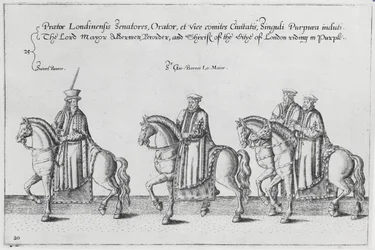 Prætor Londinensis Senatores, Orator, et vice comites Civitatis, Singuli Purpura induti.
The Lord Mayor Aldermen Recorder, and Shrifs of the Citye of London riding in Purple.
Sword Bearer.
Sr Geo: Barnes Lo: Maior.
20